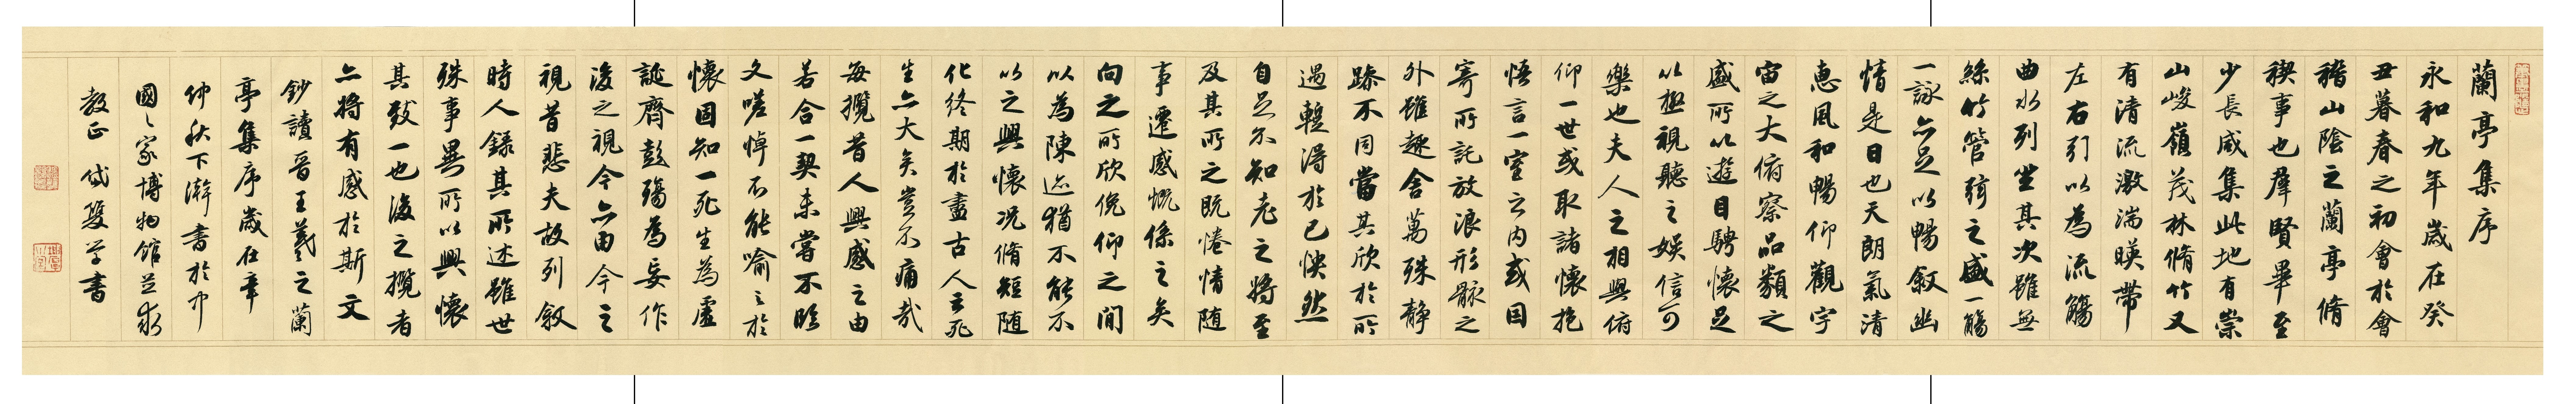 蘭亭集序
永和九年歲在癸
丑暮春之初會於會
稽山陰之蘭亭脩
禊事也羣賢畢至
少長咸集此地有崇
山峻嶺茂林脩竹又
有清流激湍暎帶
左右引以為流觴
曲水列坐其次雖無
絲竹管弦之盛一觴
一詠亦足以暢敘幽
情是日也天朗氣清
惠風和暢仰觀宇
宙之大俯察品類之
盛所以遊目騁懷足
以極視聽之娛信可
樂也夫人之相與俯
仰一世或取諸懷抱
悟言一室之內或因
寄所託放浪形骸之
外雖趣舍萬殊靜
躁不同當其欣於所
遇蹔得於己怏然
自足不知老之將至
及其所之既惓情隨
事遷感慨係之矣
向之所欣俛仰之間
以為陳迹猶不能不
以之興懷況脩短隨
化終期於盡古人云死
生亦大矣豈不痛哉
每攬昔人興感之由
若合一契未嘗不臨
文嗟悼不能喻之於
懷固知一死生為虛
誕齊彭殤為妄作
後之視今亦由今之
視昔悲夫故列敘
時人錄其所述雖世
殊事異所以興懷
其致一也後之攬者
亦將有感於斯文
鈔讀晉王羲之蘭
亭集序歲在辛
仲秋下澣書於中
國々家博物館並求
教正 學書